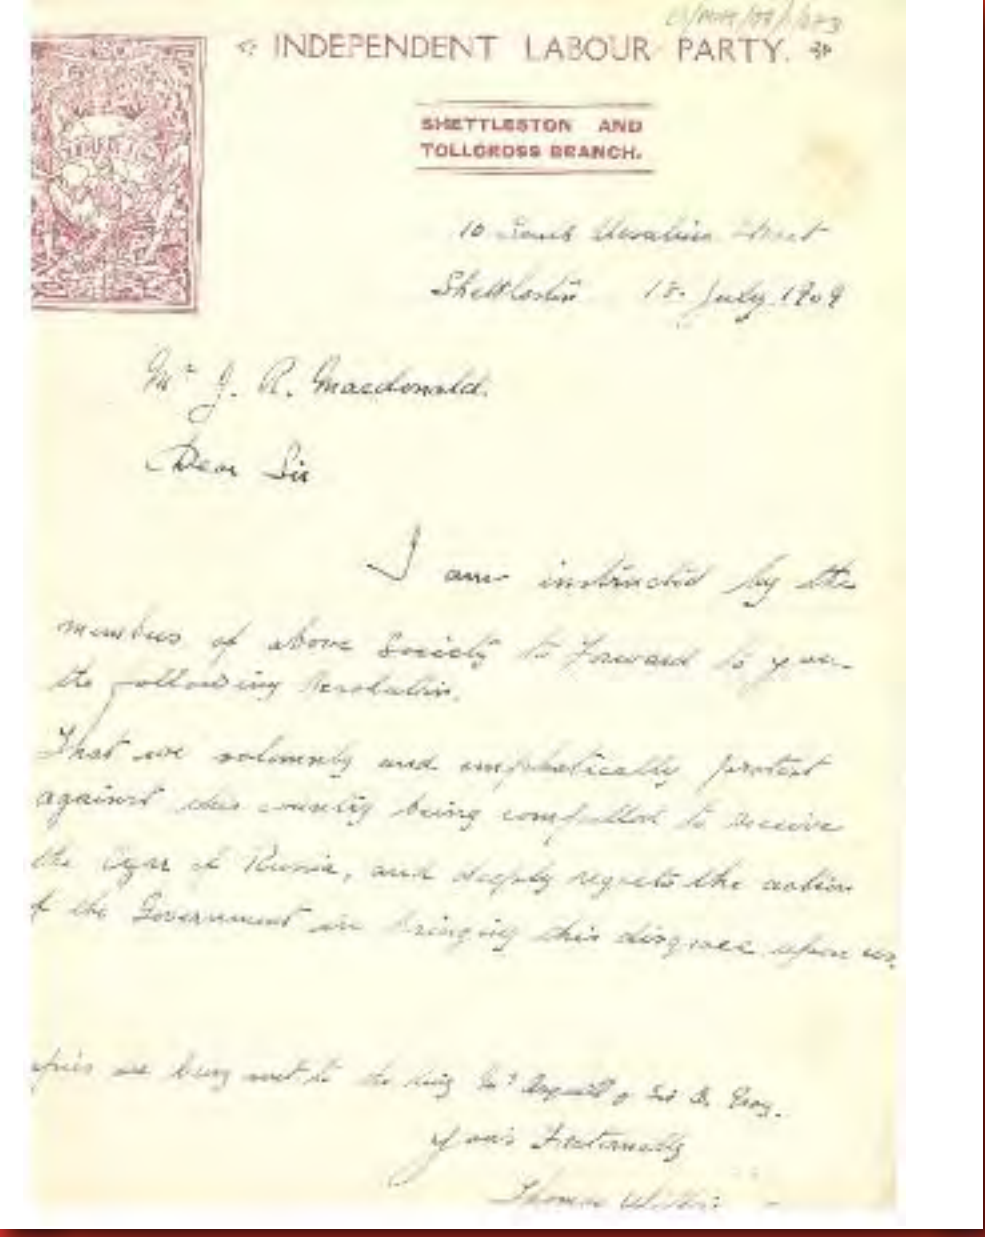 INDEPENDENT LABOUR PARTY.
SHETTLESTON AND
TOLLCROSS BRANCH.
10 Street
Shettleston 18 July 1909
Mr J. R. Macdonald.
Dear Sir
I am instructed by the
members of above Society to Forward to you
the following Resolution.
That we solemnly and emphatically protest
against this country being compelled to receive
the Czar of Russia, and deeply regrets the action
of the Government in bringing this disgrace upon us.
opies are being sent to the King Mr Asquith & Sir E. Grey.
Yours Fraternally
Thomas